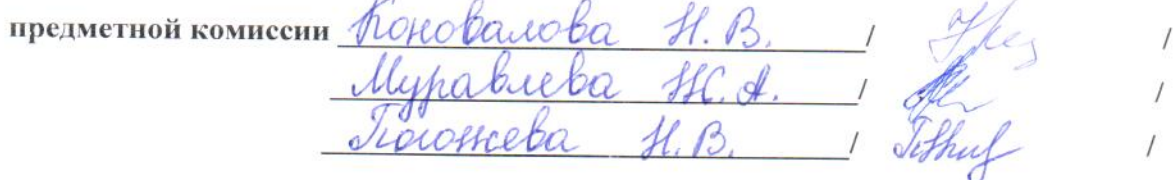 предметной комиссии Коновалова Н. В. / /
Муравлева Ж. А. / /
Погожева Н. В. / /